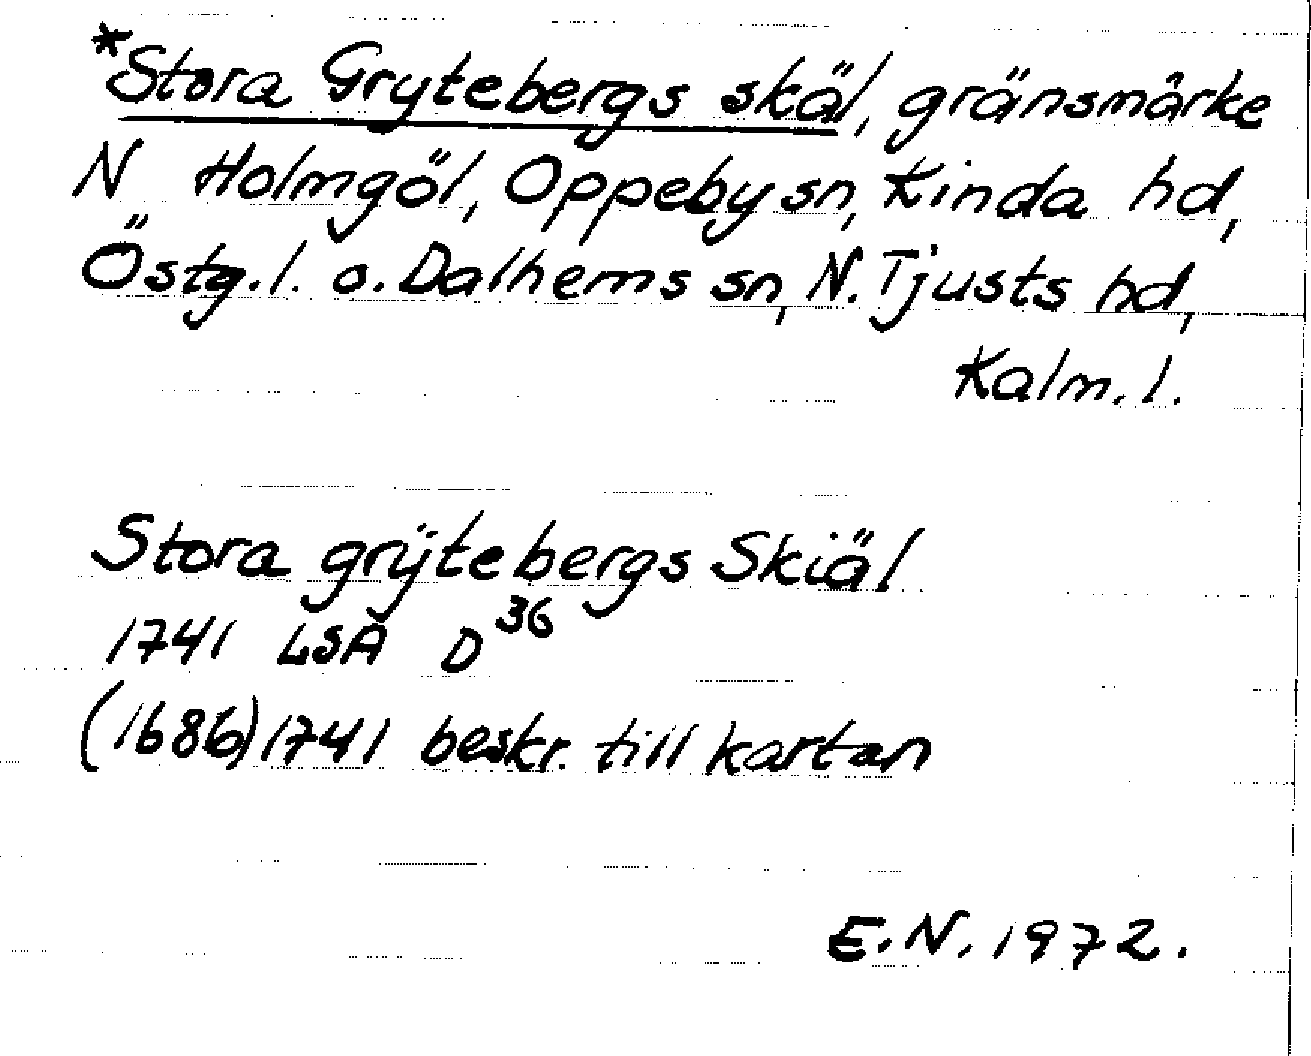 *Stora Grytebergs skäl, gränsmärke
N Holmgöl, Oppeby sn, Kinda hd,
Östg. l. o. Dalhems sn, N. Tjusts hd,
Kalm. l.
Stora grÿtebergs Skiäl
1741 LSA D36
(1686) 1741 beskr. till kartan
E.N. 1972.